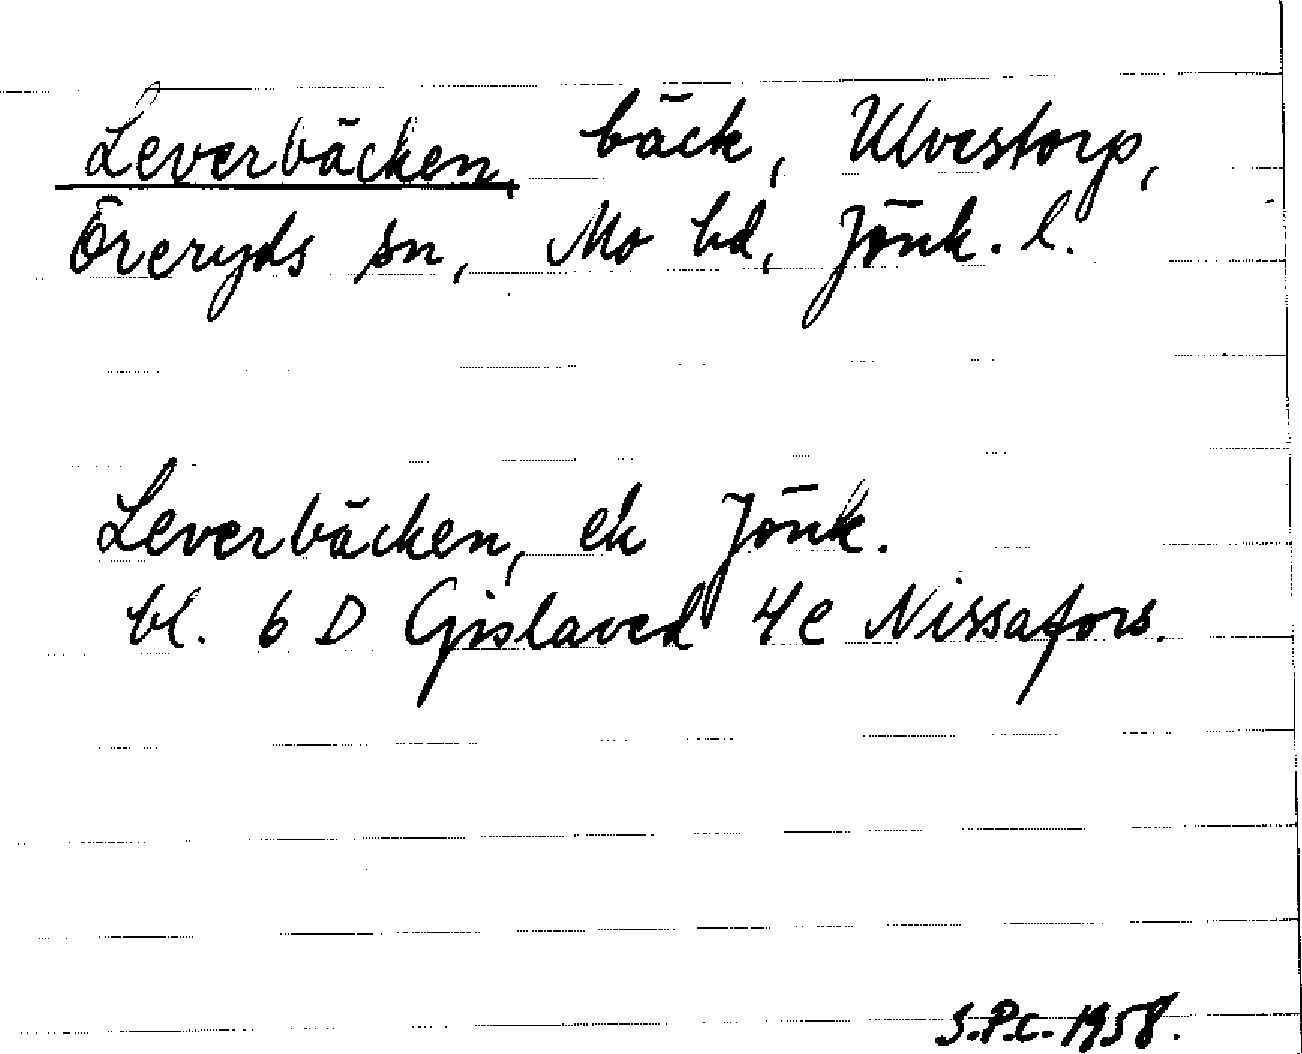 Leverbäcken, bäck, Ulvestorp,
Öreryds sn, Mo hd, Jönk. l.
Leverbäcken, ek Jönk.
bl. 6 D Gislaved 4 e Nissafors.
S.P.C. 1958.